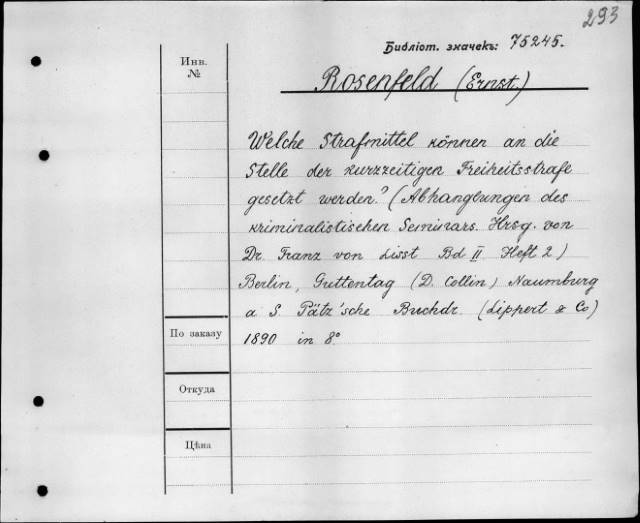 293
Библіот. значекъ: 75245.
Инв.
№
Rosenfeld (Ernst.)
Welche Strafmittel können an die
Stelle der kurzzeitigen Freiheitsstrafe
gesetzt werden? (Abhanglungen des
kriminalistischen Seminars. Hrsg. von
Dr. Franz von Liszt Bd II Heft 2)
Berlin, Guttentag (D. Collin) Naumburg
a S. Pätz'sche Buchdr. (Lippert & Co)
1890 in 8°
По заказу
Откуда
Цѣна